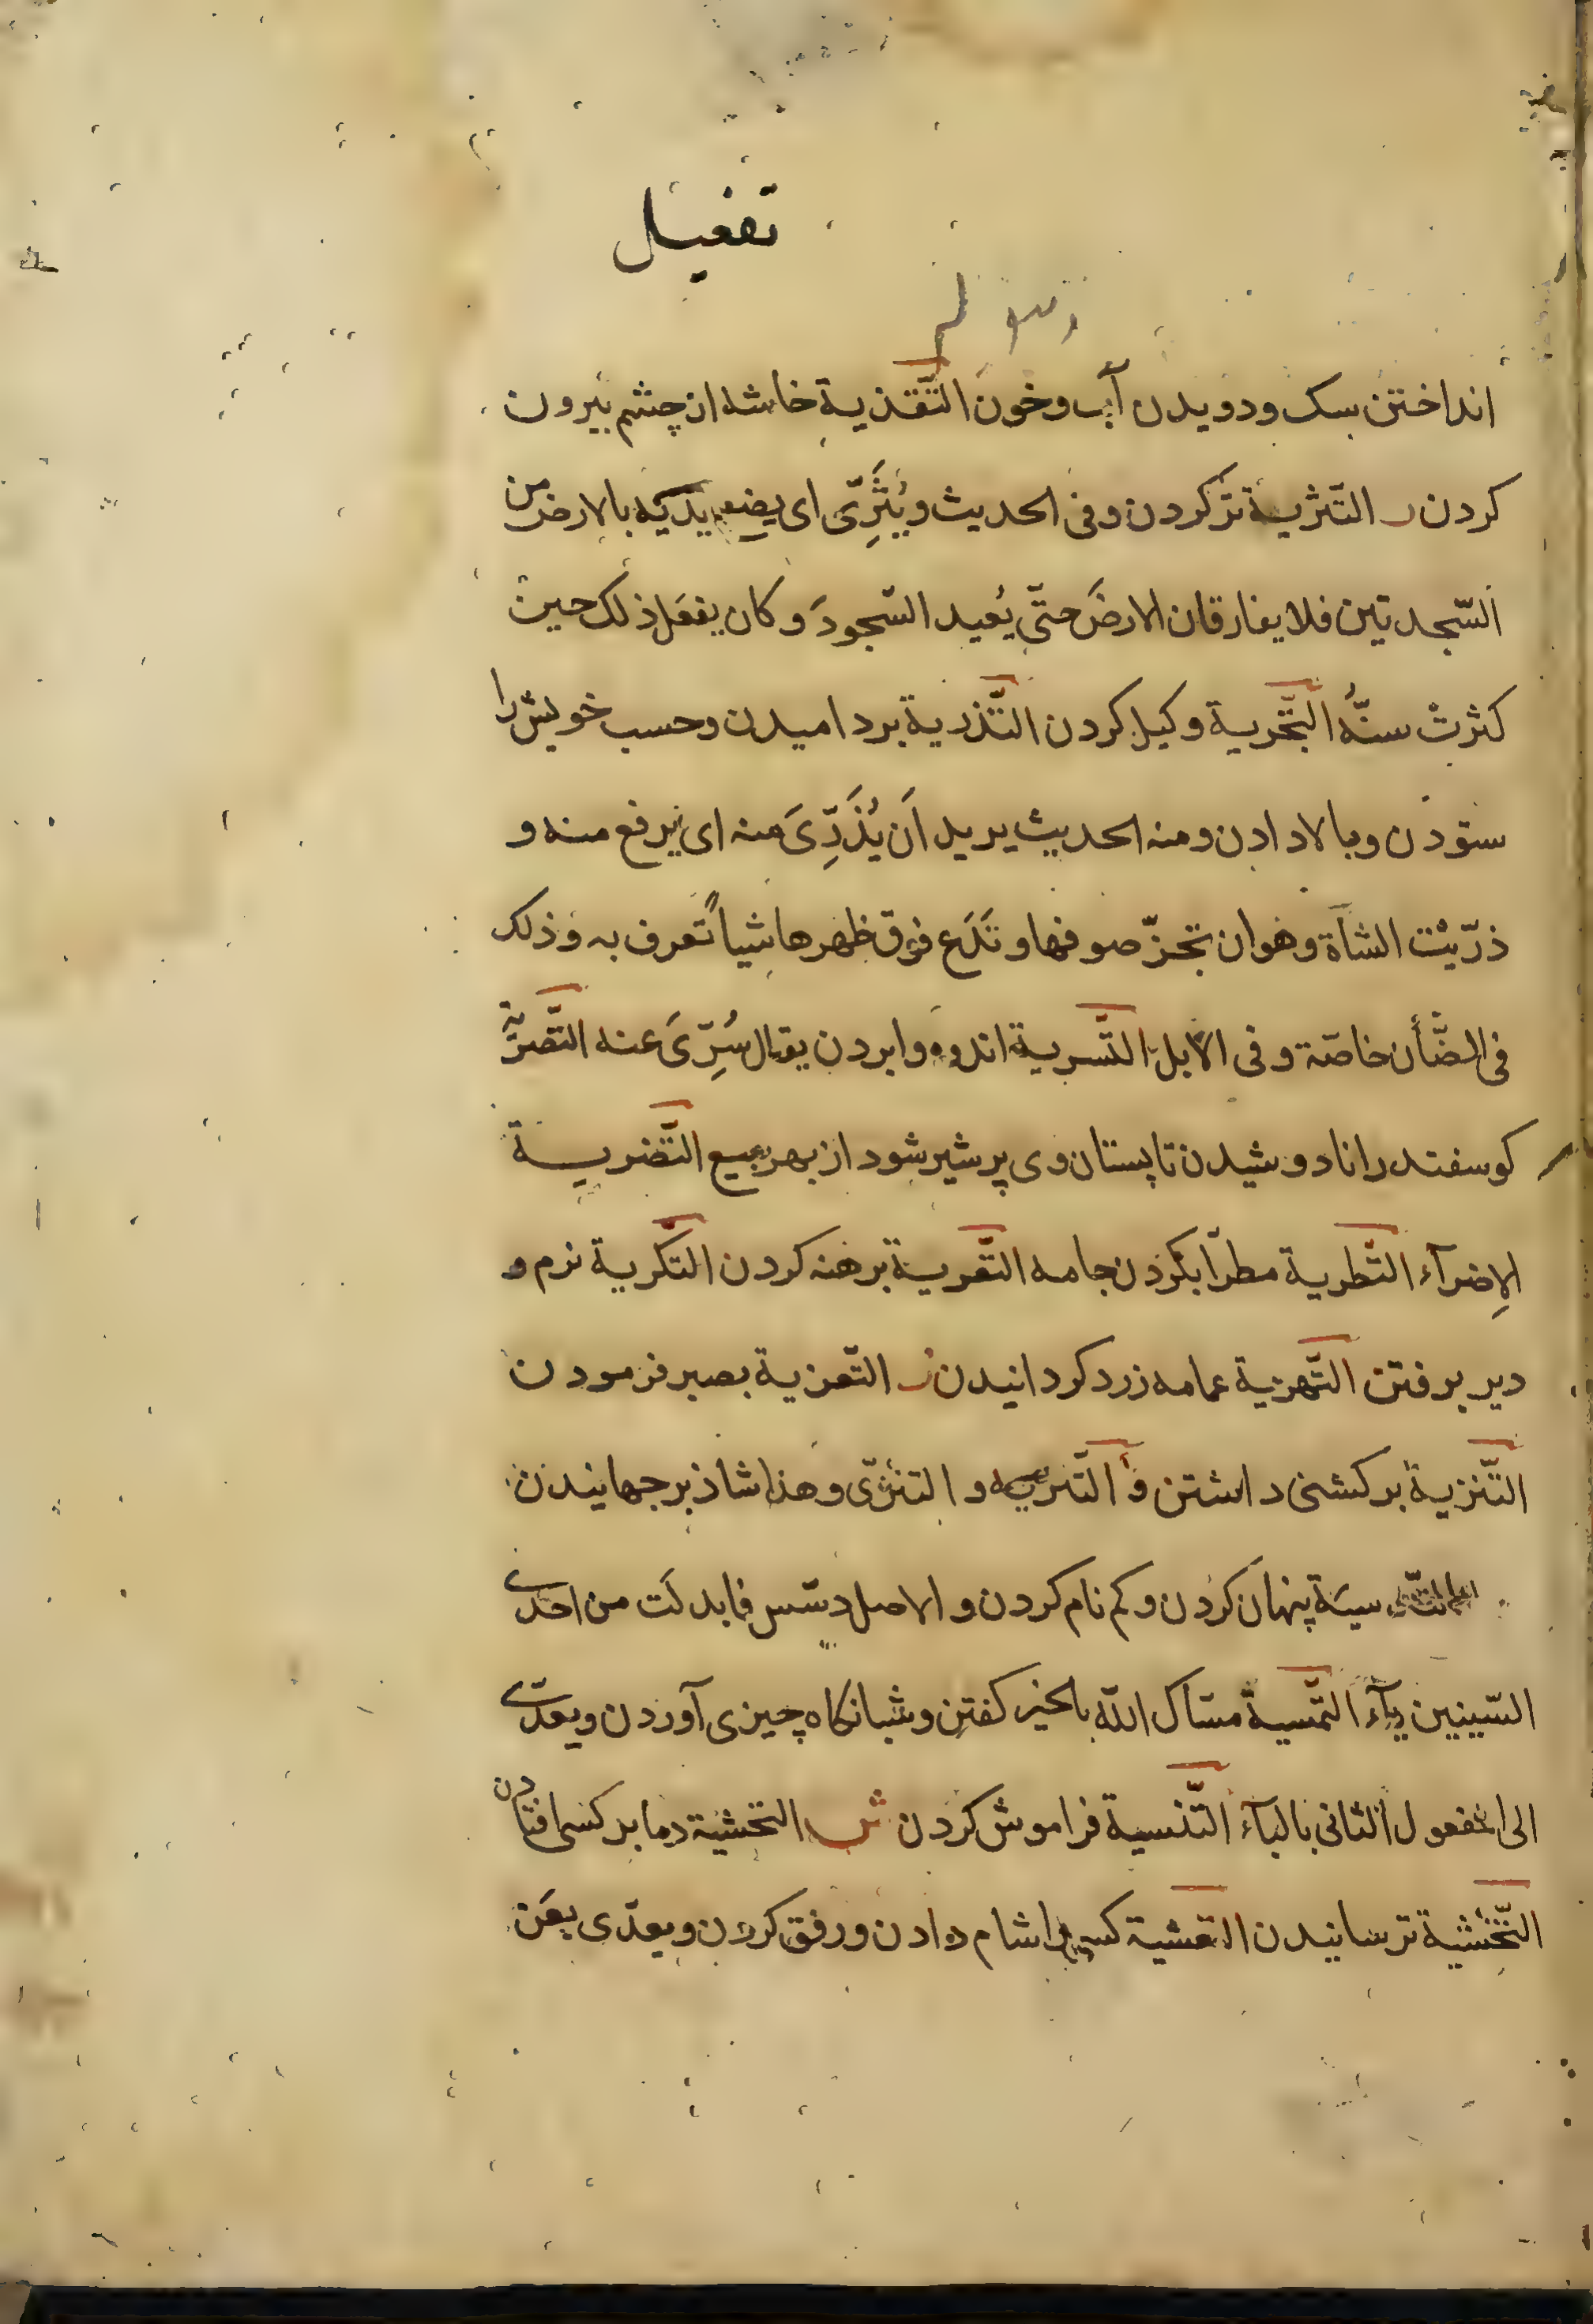 تفعیل
انداختن سک و دویدن آب و خون التَّقذیة خاشه از چشم بیرون
کردن ر التّثریة تر کردن و فی الحدیث و یُثَرِّی ای یضع یدیه بالارض من
السّجدتین فلا یفارقان الارضَ حتّی یُعید السّجودَ و کان یفعل ذلک حین
کثرت سنّه التَّجریة وکیل کردن التَّذریة برد امیدن و حسب خویش را
ستودن و بالا دادن و منه الحدیث یرید اَن یُذَرِّیَ منه ای یرفع منه و
ذرّیْت الشاة و هو ان تجزّ صوفها و تَدَع فوق ظهرها شیاً تعرف به و ذلک
فی الضّأن خاصّة و فی الابل التَّسریة اندوه وابردن یقال سُرِّیَ عنه التَّصریة
کوسفند را نادوشیدن تا پستان وی پر شیر شود از بهر بیع التَّضریة
الاِضرآء التَّطریة مطرّا بکردن جامه التَّعریة برهنه کردن التَّکریة نرم و
دیر برفتن التَّهریة عمامه زرد کردانیدن ز التّعزیة بصبر فرمودن
التَّنزیة بر کشنی داشتن و التَّنزیه و التنزّی و هذا شاذ برجهانیدن
سیَة پنهان کردن و کم نام کردن و الاصل دسّس فابدلَت من احدی
السّینین یآء التَّمسیة مسّاک اللّه بالخیر کفتن و شبانکاه چیزی آوردن و یعدّی
الی المفعول الثانی بالبآء التَّنسیة فراموش کردن ش التحشیة دما بر کسی افتادن
التَّخشیة ترسانیدن التعشیة کسی را شام دادن و رفق کردن و یعدّی بعَن